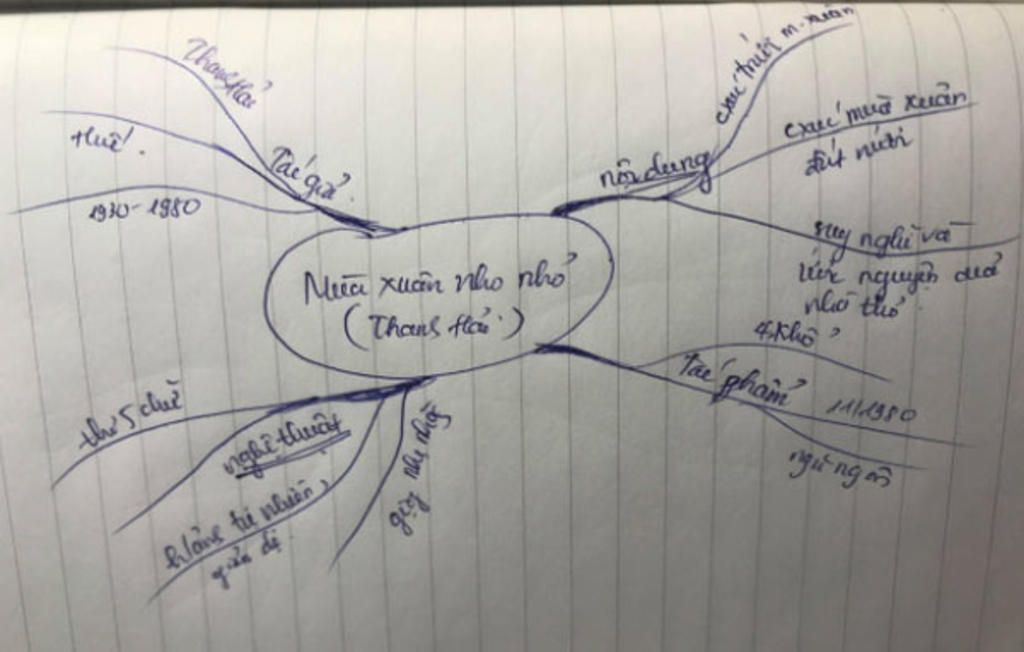 Mùa xuân nho nhỏ
(Thanh Hải)
Tác giả
Thanh Hải
Huế.
1930-1980
nội dung
cxúc trước m.xuân
cxúc mùa xuân
đất nước
suy nghĩ và
ước nguyện của
nhà thơ
Tác phẩm
4 khổ
11/1980
ngũ ngôn
nghệ thuật
thơ 5 chữ
h/ảnh tự nhiên,
giản dị
giọng nhẹ nhàng